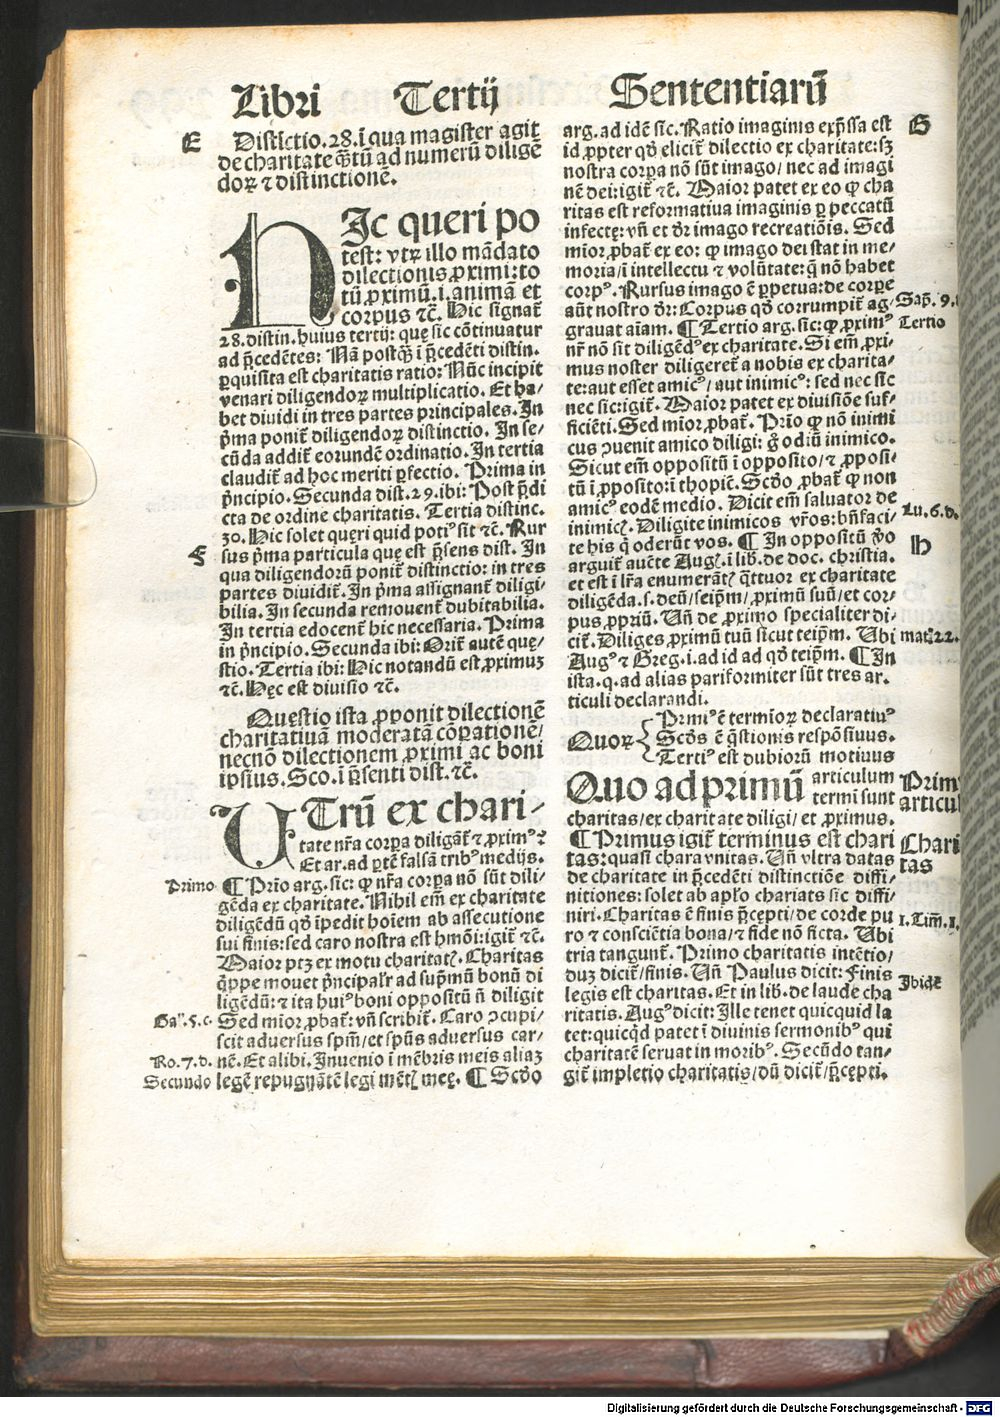 Libri Tertij Sententiarũ
E
Distictio.28.ĩ qua magister agit
de charitate q̃tũ ad numerũ diligẽ
doꝝ ⁊ distinctionẽ.
HIc queri po
test: vtꝝ illo mãdato
dilectionis ꝓximi: to
tũ ꝓximũ.i.animã et
corpus ⁊c̃. Hic signat̃
28.distin.huius tertij: quę sic cõtinuatur
ad p̃cedẽtes: Nã postq̃ ĩ p̃cedẽti distin.
ꝑquisita est charitatis ratio: Nũc incipit
venari diligendoꝝ multiplicatio. Et ha-
bet diuidi in tres partes principales. In
p̃ma ponit̃ diligendoꝝ distinctio. In se-
cũda addit̃ eorundẽ ordinatio. In tertia
claudit̃ ad hoc meriti ꝑfectio. Prima in
p̃ncipio. Secunda dist.29.ibi: Post p̃di
cta de ordine charitatis. Tertia distinc.
30. Hic solet quęri quid potiꝰ sit ⁊c̃. Rur
F
sus p̃ma particula que est p̃sens dist. In
qua diligendorũ ponit̃ distinctio: in tres
partes diuidit̃. In p̃ma assignant̃ diligi-
bilia. In secunda remouent̃ dubitabilia.
In tertia edocent̃ hic necessaria. Prima
in p̃ncipio. Secunda ibi: Orit̃ autẽ quę-
stio. Tertia ibi: Hic notandũ est ꝓximuʒ
⁊c̃. Hęc est diuisio ⁊c̃.
Quęstio ista ꝓponit dilectionẽ
charitatiuã moderatã cõꝑationẽ/
necnõ dilectionem ꝓximi ac boni
ipsius. Sco.ĩ p̃senti dist.⁊c̃.
UTrũ ex chari-
tate nr̃a corꝑa diligãt̃ ⁊ ꝓximꝰ?
Et ar.ad ꝑtẽ falsã tribꝰ medijs.
Primo
¶ Prĩo arg.sic: ꝙ nr̃a corꝑa nõ sũt dili-
gẽda ex charitate. Nihil em̃ ex charitate
diligẽdũ qd̃ ĩpedit hoĩem ab assecutione
sui finis: sed caro nostra est hmõi: igit̃ ⁊c̃.
Maior ptʒ ex motu charitatꝭ. Charitas
q̃ppe mouet p̃ncipalr̃ ad sup̃mũ bonũ di
ligẽdũ: ⁊ ita huiꝰ boni oppositũ ñ diligit
Gaꝰ.5.c.
Sed mĩor ꝓbat̃: vñ scribit̃. Caro ↄcupi-
scit aduersus spm̃/et spũs aduersus car-
Ro.7.d.
nẽ. Et alibi. Inuenio ĩ mẽbris meis aliaʒ
Secundo
legẽ repugnãtẽ legi mẽtꝭ meę. ¶ Scd̃o
arg.ad idẽ sic. Ratio imaginis exp̃ssa est
G
id ꝓpter qd̃ elicit̃ dilectio ex charitate: sʒ
nostra corꝑa nõ sũt imago/nec ad imagi
nẽ dei: igit̃ ⁊c̃. Maior patet ex eo ꝙ cha
ritas est reformatiua imaginis ꝑ peccatũ
infectę: vñ et dr̃ imago recreatiõis. Sed
mĩor ꝓbat̃ ex eo: ꝙ imago dei stat in me-
moria/ĩ intellectu ⁊ volũtate: q̃ nõ habet
corpꝰ. Rursus imago ẽ ꝑpetua: de corꝑe
Sap̃.9.
aũt nostro dr̃: Corpus qd̃ corrumpit̃ ag-
Tertio
grauat aĩam. ¶ Tertio arg.sic: ꝙ ꝓximꝰ
nr̃ nõ sit diligẽdꝰ ex charitate. Si em̃ ꝓxi-
mus noster diligeret̃ a nobis ex charita-
te: aut esset amicꝰ/aut inimicꝰ: sed nec sic̃
nec sic: igit̃. Maior patet ex diuisiõe suf-
ficiẽti. Sed mĩor ꝓbat̃. Prĩo ꝙ nõ inimi
cus ↄuenit amico diligi: g̃ odiũ inimico.
Sicut em̃ oppositũ ĩ opposito/⁊ ꝓposi-
tũ ĩ ꝓposito: ĩ thopic̃. Scd̃o ꝓbat̃ ꝙ non
amicꝰ eodẽ medio. Dicit em̃ saluator de
Lu.6.d.
inimicꝭ. Diligite inimicos vr̃os: bñfaci-
te his q̃ oderũt vos. ¶ In oppositũ ꝟo
H
arguit̃ auc̃te Augꝭ.ĩ lib.de doc.christia.
et est ĩ lr̃a enumerãtꝭ q̃ttuor ex charitate
diligẽda.s.deũ/seip̃m/ꝓximũ suũ/et cor-
pus ꝓpriũ. Uñ de ꝓximo specialiter di-
mat̃.22.
cit̃. Diliges ꝓximũ tuũ sicut teip̃m. Ubi
Augꝰ ⁊ Greg.i.ad id ad qd̃ teip̃m. ¶ In
ista.q.ad alias pariformiter sũt tres ar.
ticuli declarandi.
Quoꝝ
Prmꝰ ẽ termĩoꝝ declaratiuꝰ
Scd̃s ẽ q̃stionis respõsiuus.
Tertiꝰ est dubiorũ motiuus
Quo ad primũ articulum
termi sunt
Prim
articul
charitas/ex charitate diligi/et ꝓximus.
¶ Primus igit̃ terminus est chari
Chari
tas
tas: quasi chara vnitas. Uñ vltra datas
de charitate in p̃cedẽti distinctiõe diffi-
nitiones: solet ab apl̃o chariats sic diffi-
niri. Charitas ẽ finis p̃cępti/de corde pu
1.Tim̃.1.
ro ⁊ consciẽtia bona/⁊ fide nõ ficta. Ubi
tria tangunt̃. Primo charitatis intẽtio/
duʒ dicit̃/finis. Uñ Paulus dicit: Finis
Ibidẽ
legis est charitas. Et in lib.de laude cha
ritatis. Augꝰ dicit: Ille tenet quicquid la
tet: quicq̃d patet ĩ diuinis sermonibꝰ qui
charitatẽ seruat in moribꝰ. Secũdo tan-
git̃ impletio charitatis/dũ dicit̃/p̃cępti.
Digitalisierung gefördert durch die Deutsche Forschungsgemeinschaft - DFG